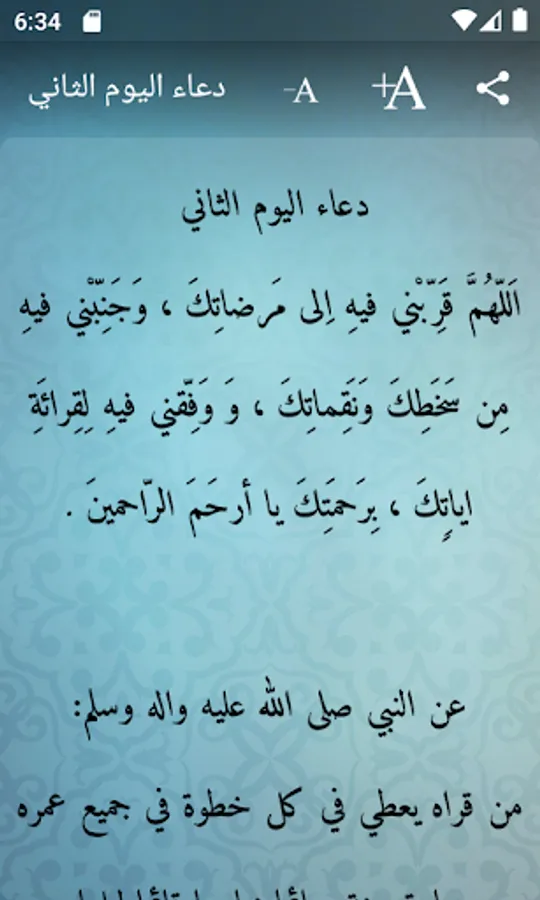 6:34
دعاء اليوم الثاني
-A
+A
دعاء اليوم الثاني
اَللّهُمَّ قَرِّبْني فيهِ اِلى مَرضاتِكَ ، وَجَنِّبْني فيهِ
مِن سَخَطِكَ وَنَقِماتِكَ ، وَ وَفِّقني فيهِ لِقِرائَةِ
اياتِِكَ ، بِرَحمَتِكَ يا أرحَمَ الرّاحمينَ .
عن النبي صلى الله عليه واله وسلم:
من قراه يعطي في كل خطوة في جميع عمره